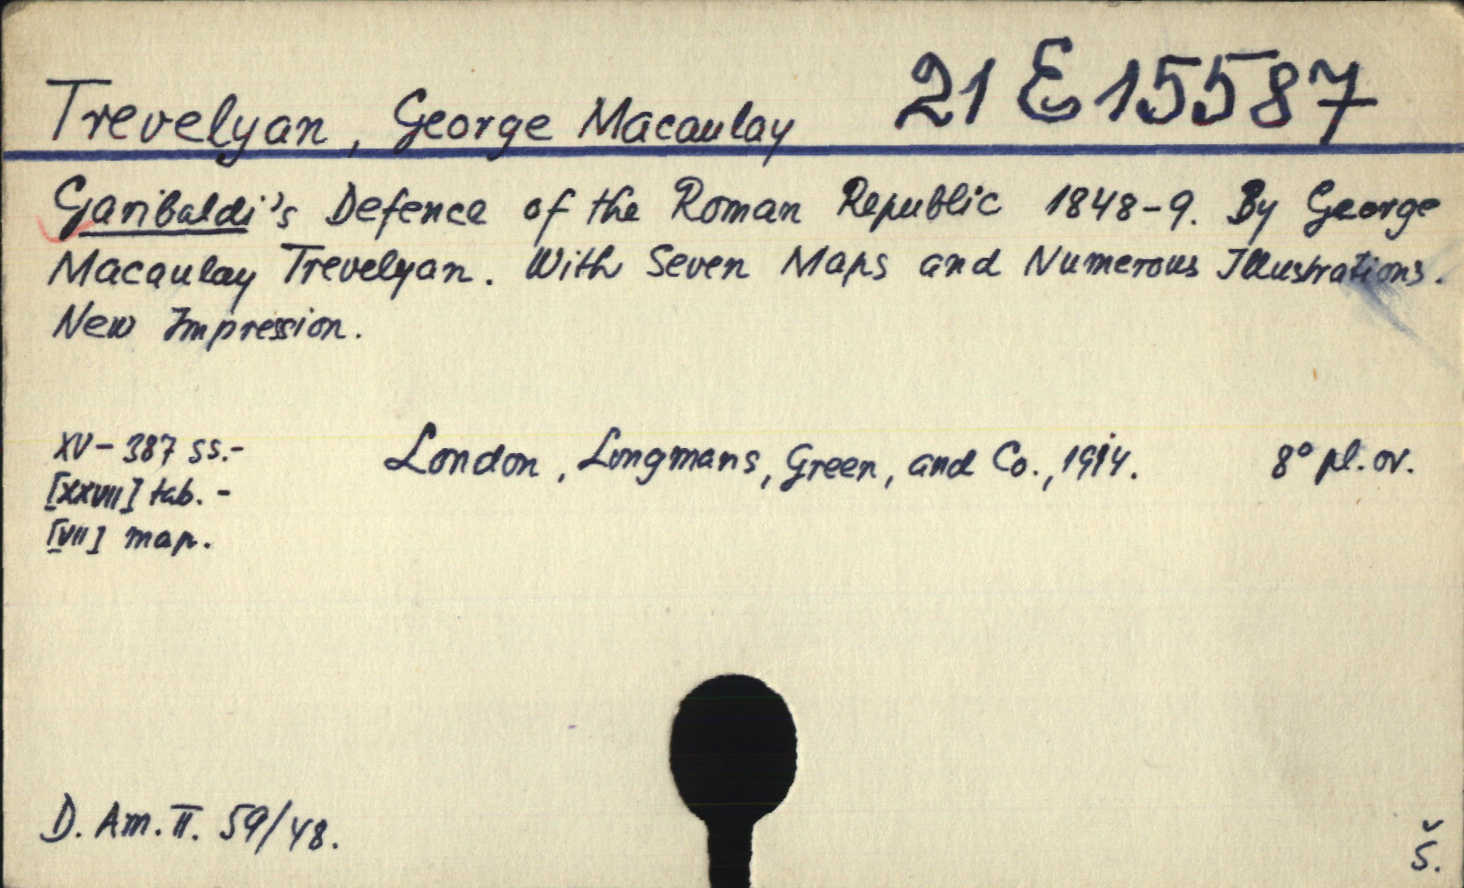 Trevelyan, George Macaulay 21 E 15587
Garibaldi's Defence of the Roman Republic 1848-9. By George
Macaulay Trevelyan. With Seven Maps and Numerous Illustrations.
New Impression.
XV - 387 ss.- London, Longmans, Green, and Co., 1914. 8° pl. or.
[XXVII] tab. -
[VII] map.
D. Am. II. 59/48.
Š.